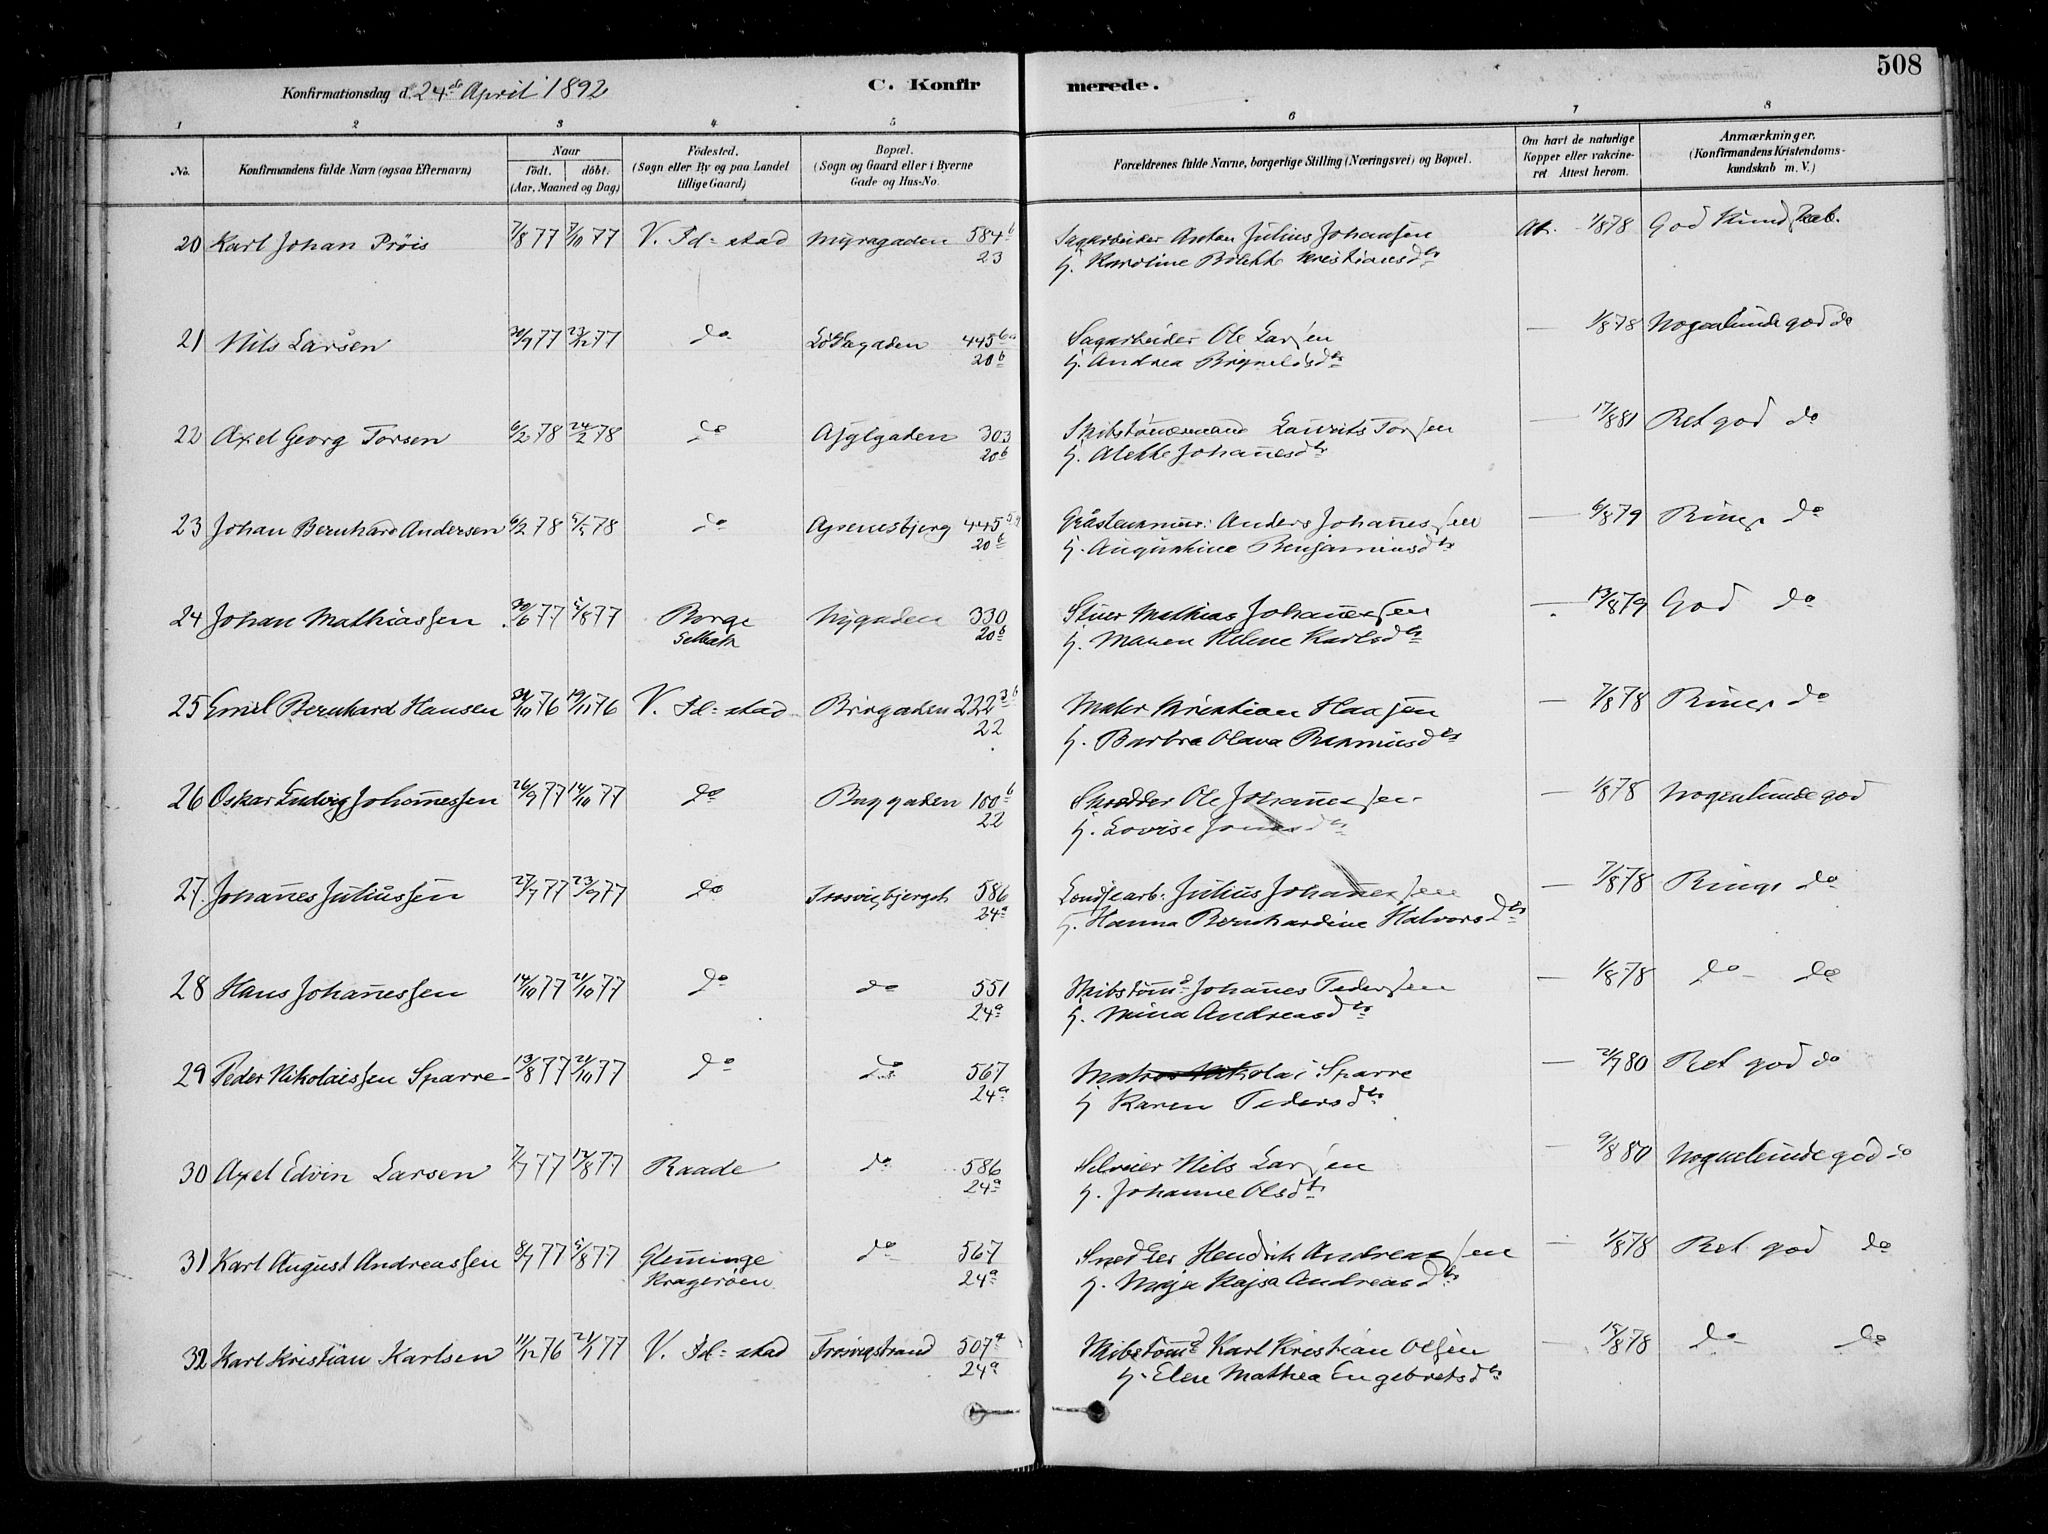 508
Konfirmationsdag d. 24de April 1892 C. Konfirmerede.
1 2 3 4 5 6 7 8
No. Konfirmandens fulde Navn (ogsaa Efternavn) Naar født. døbt. (Aar, Maaned og Dag) Fødested. (Sogn eller By og paa Landet tillige Gaard) Bopæl. (Sogn og Gaard eller i Byerne Gade og Hus-No. Forældrenes fulde Navne, borgerlige Stilling (Næringsvei) og Bopæl. Om havt de naturlige Kopper eller vakcineret Attest herom. Anmærkninger. (Konfirmandens Kristendomskundskab m. V.)
20 Karl Johan Prøis 7/8 77 7/10 77 V. Fd=stad Myragaden 584b Sagarbeider Anton Julius Johansen At. 1/8 78 God Kundskab.
23 H. Karoline Bolette Kristiansdtr
21 Nils Larsen 30/9 77 23/12 77 do 445 Sagarbeider Ole Larsen — 1/8 78 Nogenlunde god do
20b H. Andrea
22 Axel Georg Torsen 6/2 78 24/2 78 do 303 Laurits Torsen — 17/8 81 Ret god do
20b H. Alette Johannesdtr
23 Johan Bernhard Andersen 6/2 78 78 do 445 Anders Johannessen — 6/8 79 Ringe do
20b H. Augustine Benjaminsdtr
24 Johan Mathiassen 30/6 77 5/8 77 Borge Nygaden 330 Stuer Mathias Johannessen — 13/8 79 God do
20b H. Maren Helene Karlsdtr
25 Emil Bernhard Hansen 31/10 76 19/11 76 V. Fd=stad 222 Kristian Hansen — 7/8 78 Ringe do
22 H. Barbra Olava Rasmusdtr
26 Oskar Ludvig Johannessen 26/9 77 14/10 77 do 100b Skredder Ole Johannessen — 1/8 78 Nogenlunde god
22 H. Lovise
27. Johannes Juliussen 27/7 77 23/9 77 do 586 Julius Johannessen — 7/8 78 Ringe do
24a H. Hanna Bernhardine Halvorsdtr
28 Hans Johannessen 14/10 77 21/10 77 do do 551 Skibstømd Johannes Pedersen — 1/8 78 do do
24a H. Mina Andreasdtr
29 Peder Nikolaissen Sparre 13/8 77 21/10 77 do do 567 Matros Nikolai Sparre — 21/7 80 Ret god do
24a H Karen Pedersdtr
30 Axel Edvin Larsen 7/7 77 12/8 77 Raade do 586 Nils Larsen — 9/8 80 Nogenlunde god do
24a H. Johanne Olsdtr
31 Karl August Andreassen 8/7 77 5/8 77 Glemminge do 567 Snedker Hendrik Andreassen — 1/8 78 Ret god do
Kragerøen 24a H. Maja Kajsa Andreasdtr
32 Karl Kristian Karlsen 11/12 76 21/1 77 V. Fd=stad Trosvigstrand 507a Skibstømd Karl Kristian Olsen — 15/8 78 do do
24a H. Elen Mathea Engebretsdtr